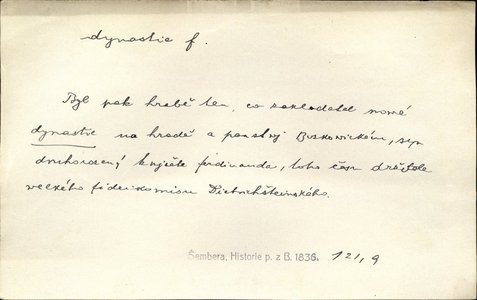 dynastie f.
Byl pak hrabě ten, co zakladatel nowé
dynastie na hradě a panstwj Boskowickém, syn
druhorozený knjžete Ferdinanda, toho času držitele
welkého fideikomisu Dietrichšteinského.
Šembera, Historie p. z B. 1836. 121, 9